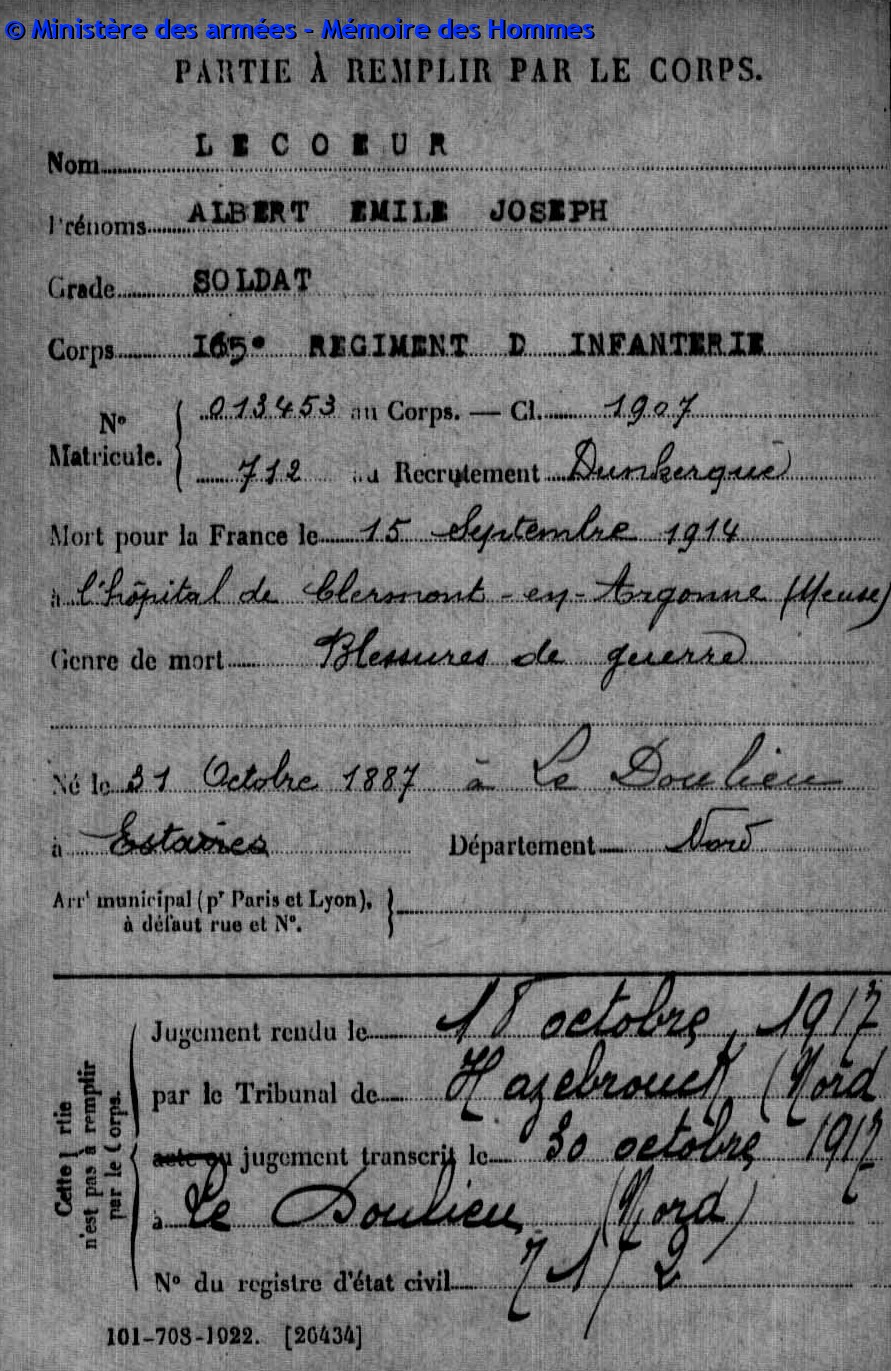 © Ministère des armées - Mémoire des Hommes
PARTIE À REMPLIR PAR LE CORPS.
Nom LECOEUR
Prénoms ALBERT EMILE JOSEPH
Grade SOLDAT
Corps 165e REGIMENT D INFANTERIE
No Matricule. { 013453 au Corps. — Cl. 1907
712 au Recrutement Dunkerque
Mort pour la France le 15 Septembre 1914
à l'hôpital de Clermont-en-Argonne (Meuse)
Genre de mort Blessures de guerre
Né le 31 Octobre 1887 à Le Doulieu
à Estaires Département Nord
Arrt municipal (pr Paris et Lyon), à défaut rue et No.
Cette partie n'est pas à remplir par le Corps.
Jugement rendu le 18 octobre 1917
par le Tribunal de Hazebrouck (Nord
acte ou jugement transcrit le 30 octobre 1917
à Le Doulieu (Nord)
No du registre d'état civil
101-708-1922. [26434]